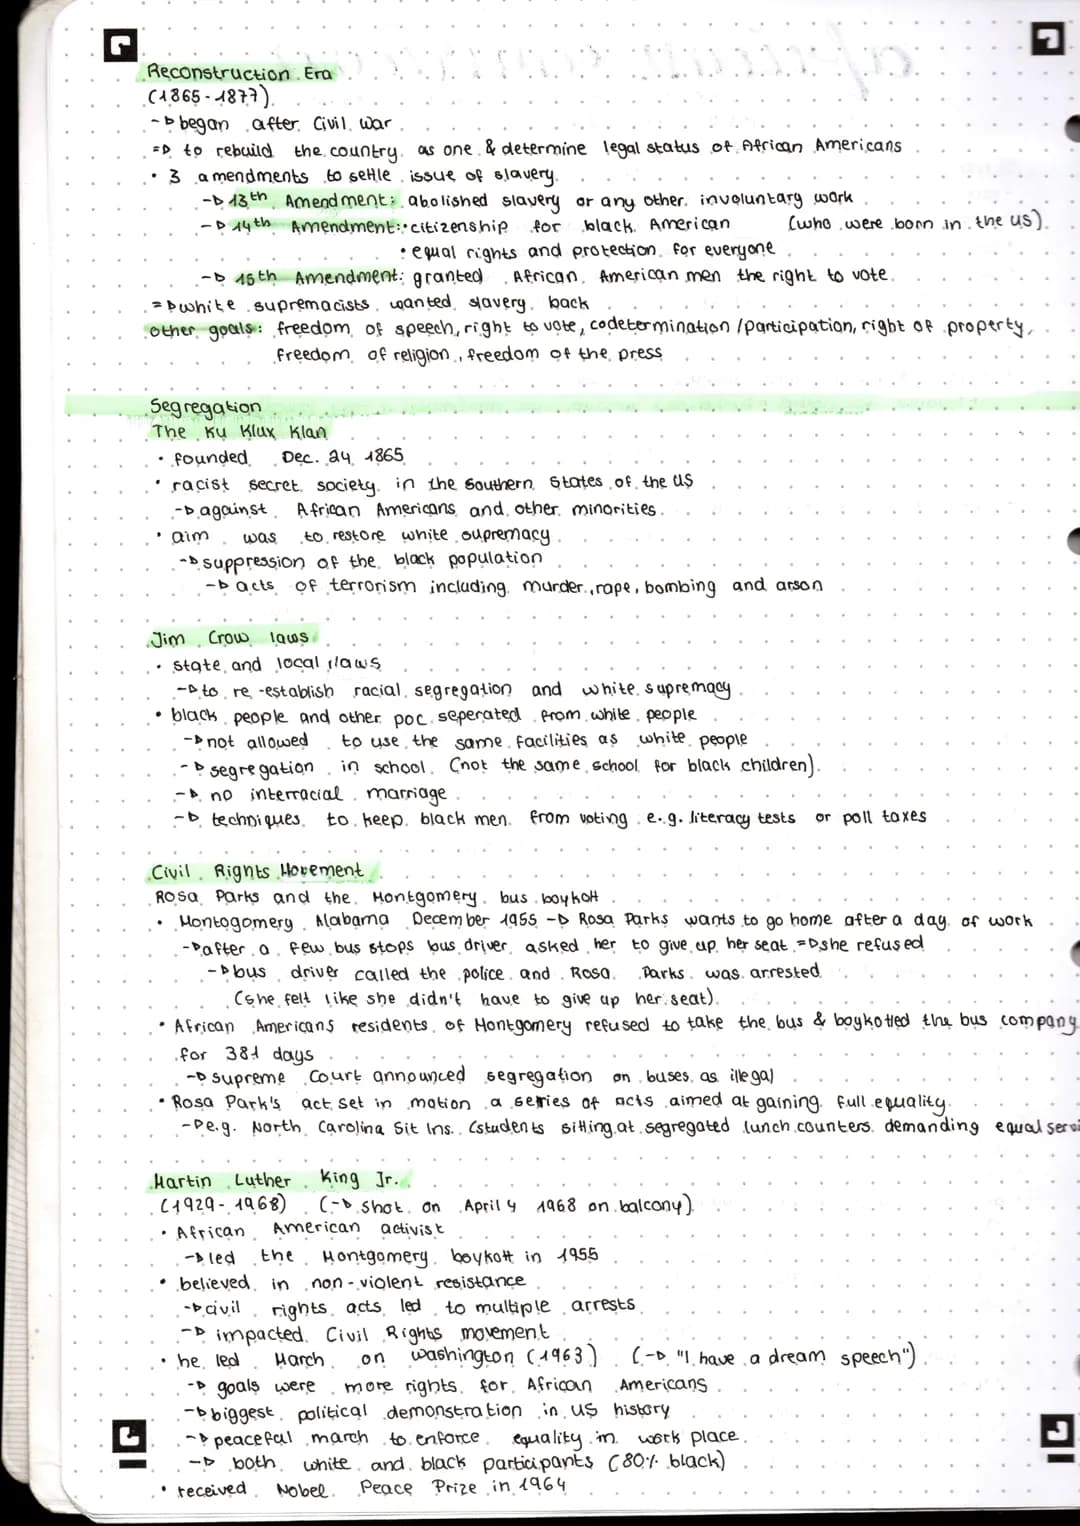 Reconstruction Era
(1865-1877)
-▷ began after Civil war
=▷ to rebuild the country as one & determine legal status of African Americans
• 3 amendments to settle issue of slavery
-▷ 13th Amendment: abolished slavery or any other involuntary work
-▷ 14th Amendment: • citizenship for black American (who were born in the US)
• equal rights and protection for everyone
-▷ 15th Amendment: granted African American men the right to vote
=▷ white supremacists wanted slavery back
other goals: freedom of speech, right to vote, codetermination / participation, right of property,
freedom of religion, freedom of the press
Segregation
The Ku Klux Klan
• founded Dec. 24 1865
• racist secret society in the Southern States of the US
-▷ against African Americans and other minorities
• aim was to restore white supremacy
-▷ suppression of the black population
-▷ acts of terrorism including murder, rape, bombing and arson
Jim Crow laws
• state and local laws
-▷ to re-establish racial segregation and white supremacy
• black people and other poc seperated from white people
-▷ not allowed to use the same facilities as white people
-▷ segregation in school (not the same school for black children)
-▷ no interracial marriage
-▷ techniques to keep black men from voting e.g. literacy tests or poll taxes
Civil Rights Movement
Rosa Parks and the Montgomery bus boykott
• Montogomery Alabama December 1955 -▷ Rosa Parks wants to go home after a day of work
-▷ after a few bus stops bus driver asked her to give up her seat =▷ she refused
-▷ bus driver called the police and Rosa Parks was arrested
(she felt like she didn't have to give up her seat)
• African Americans residents of Montgomery refused to take the bus & boykotted the bus company
for 381 days
-▷ supreme Court announced segregation on buses as illegal
• Rosa Park's act set in motion a series of acts aimed at gaining full equality
-▷ e.g. North Carolina Sit Ins (students sitting at segregated lunch counters demanding equal servi
Martin Luther King Jr.
(1929-1968) (-▷ shot on April 4 1968 on balcony)
• African American activist
-▷ led the Montgomery boykott in 1955
• believed in non-violent resistance
-▷ civil rights acts led to multiple arrests
-▷ impacted Civil Rights movement
• he led March on Washington (1963) (-▷ "I have a dream speech")
-▷ goals were more rights for African Americans
-▷ biggest political demonstration in US history
-▷ peaceful march to enforce equality in work place
-▷ both white and black participants (80% black)
• received Nobel Peace Prize in 1964